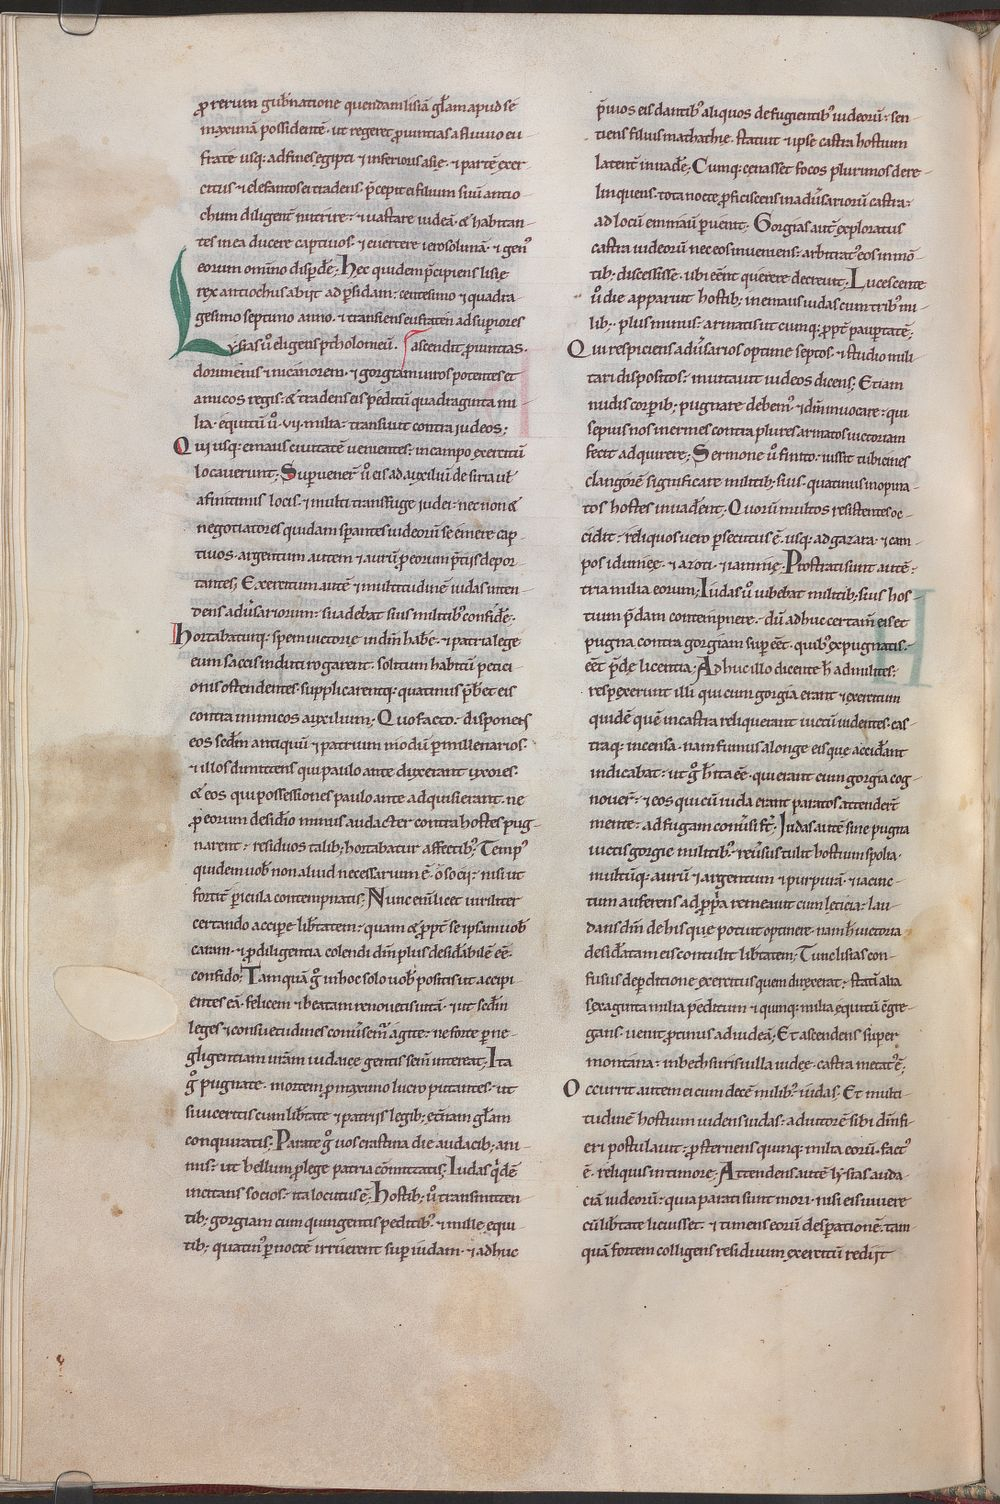 ꝓ rerum gub̄natione quendam lisiā gl̄am apud se
maximā possidentē· ut regeret ꝓuintias a fluuio eu-
frate usq; ad fines egipti ⁊ inferioris asię· ⁊ partē exer-
citus ⁊ elefantos ei tradens· p̄cepit ei filium suū antio-
chum diligent̄ nutrire· ⁊ uastare iudeā· & habitan-
tes in ea ducere captiuos· ⁊ euertere ierosolimā· ⁊ genꝰ
eorum omīno disꝑdē; Hec quidem p̄cipiens lisię
rex antiochus abiit ad ꝑsidam· centesimo ⁊ quadra-
gesimo septimo anno· ⁊ transiens eufraten ad suꝑiores
Lysias ū eligens ptholomeū. ascendit ꝓuintias.
dorimenis ⁊ nicanorem· ⁊ gorgiam uiros potentes et
amicos regis· & tradens eis peditū quadraginta mi-
lia· equitū ū· vii· milia· transiuit contra iudeos;
Qui usq; emaus ciuitatē uenientes· in campo exercitū
locauerunt; Suꝑueneꝝ ū eis ad auxiliū de siria ul̄
a finitimis locis· ⁊ multi transfuge iudei· nec non &
negotiatores quidam sperantes iudeorū se emere cap-
tiuos· argentum autem ⁊ aurū ꝑ eorum p̄tiis depor-
tantes; Exercitum autē ⁊ multitudinē iudas uiden-
dens aduersariorum· suadebat suis militibꝰ confidē·
Hortabaturq; spem uictorie in dn̄o habē· ⁊ patria lege
eum saccis induti rogarent· solitum habitū petici-
onis ostendentes· supplicarentq; quatinus p̄b̄et eis
contra inimicos auxilium; Quo facto· disponens
eos sedm̄ antiquū ⁊ patrium modū ꝑ millenarios·
⁊ illos dimittens qui paulo ante duxerant uxores·
& eos qui possessiones paulo ante adquisierant· ne
ꝓ eorum desidio minus audacter contra hostes pug-
narent· residuos talib; hortabatur affectibꝰ; Tempꝰ
quidem uob̄ non aliud necessarium ē· o socii· nisi ut
fortit̄ ꝑicula contempnatis; Nunc eni licet uiriliter
certando accipe lib̄tatem· quam & ꝓpt̄ se ipsam uob̄
caram· ⁊ ꝓ diligentia colendi dm̄ plus desid̄abilē eē
confido; Tamquā g̊ in hoc solo uob̄ positis ut accipi-
entes eā· felicem ⁊ beatam renouetis uitā· ⁊ ut sedm̄
leges ⁊ consuetudines conuersem̄ agite· ne forte ꝑ ne-
gligentiam urām iudaice gentis sem̄ intereat; Ita
g̊ pugnate· mortem ꝓ maximo lucro putantes· ut
si uiceritis cum lib̄tate ⁊ patriis legib; et̄nam gl̄am
conquiratis; Parate g̊ uos crastina die audacib; ani-
mis· ut bellum ꝓ lege patria cōmittatis; Iudas qidē
incitans socios· ita locutus ē; Hostib; ū transmitten-
tib; gorgiam cum quingentis peditibꝰ ⁊ mille equi-
tib; quatinꝰ ꝑ noctē irruerent suꝑ iudam· ⁊ ad huc
p̄uios eis dantibꝰ aliquos de fugientibꝰ iudeorū· sen-
tiens filius mathathie· statuit ⁊ ipse castra hostium
latent̄ inuadē; Cumq; cenasset focos plurimos dere-
linquens· tota nocte ꝓficiscens in aduersariorū castra·
ad locū emmaū ꝑuenit; Gorgias aut̄ exploratis
castra iudeorū nec eos inueniens· arbitratꝰ eos in mō-
tib; discessisse· ubi eēnt querere decreuit; Lucescente
ū die apparuit hostib; in emaus iudas cum tribꝰ mi-
lib;· plus minus· armatis ut cumq; ꝓpt̄ pauꝑtatē;
Qui respiciens aduersarios optime septos· ⁊ studio mili-
tari dispositos· inuitauit iudeos dicens; Etiam
nudis corꝑib; pugnare debemꝰ ⁊ dm̄ inuocare· qui
sepius nos inermes contra plures armatos uictoriam
fecit adquirere; Sermone ū finito· iussit tubicines
clangorē significare militib; suis· quatinus inopina-
tos hostes inuaderent; Quorū multos resistentes oc-
cidit· reliquos uero ꝑsecutus ē· usq; ad gazara· ⁊ cam-
pos idumęę· ⁊ azoti· ⁊ iamnię; Prostrati sunt autē·
tria milia eorum; Iudas ū iubebat militib; suis hos-
tium p̄dam contempnere· dū ad huc certam̄ eis et
pugna contra gorgiam suꝑ eēt· quibꝰ expugnatis·
eēt p̄dę licentia; Adhuc illo dicente h̄ ad milites·
respexerunt illi qui cum gorgia erant ⁊ exercitum
quidē quē in castra reliquerant uictū uidentes· cas-
traq; incensa· nam fumus a longe eis que accid̄ant
indicabat· ut g̊ h̄ ita eē· qui erant cum gorgia cog-
noueꝝ· ⁊ eos qui cū iuda erant paratos attendert̄
mente· ad fugam conuersi st̄; Iudas autē sine pugna
uictis gorgie militibꝰ· reuersus tulit hostium spolia·
multūq; aurū ⁊ argentum ⁊ purpurā· ⁊ iacinc-
tum auferens ad ꝓpria remeauit cum leticia· lau-
dans dm̄ de his que potuit optinere· nam h̄ uictoria
desid̄atam eis contulit lib̄tatem; Tunc lisias con-
fusus de ꝑditione exercitus quem direxerat· statī alia
sexaginta milia peditum ⁊ quinq; milia equitū cōgre-
gans· uenit ꝓtinus ad iudeā; Et ascendens super
montana· in bechsuris uilla iudęę· castra metatꝰ ē;
Occurrit autem ei cum decē milibꝰ iudas; Et multi-
tudinē hostium uidens iudas· adiutorē sibi dm̄ fi-
eri postulauit· ꝓsternens quinq; milia eorū· factꝰ
ē· reliquis in timore; Attendens autē lysias auda-
ciā iudeorū· quia parati sunt mori· nisi eis uiuere
cū lib̄tate licuisset· ⁊ timens eorū desperationē· tam-
quā fortem colligens residuum exercitū rediit